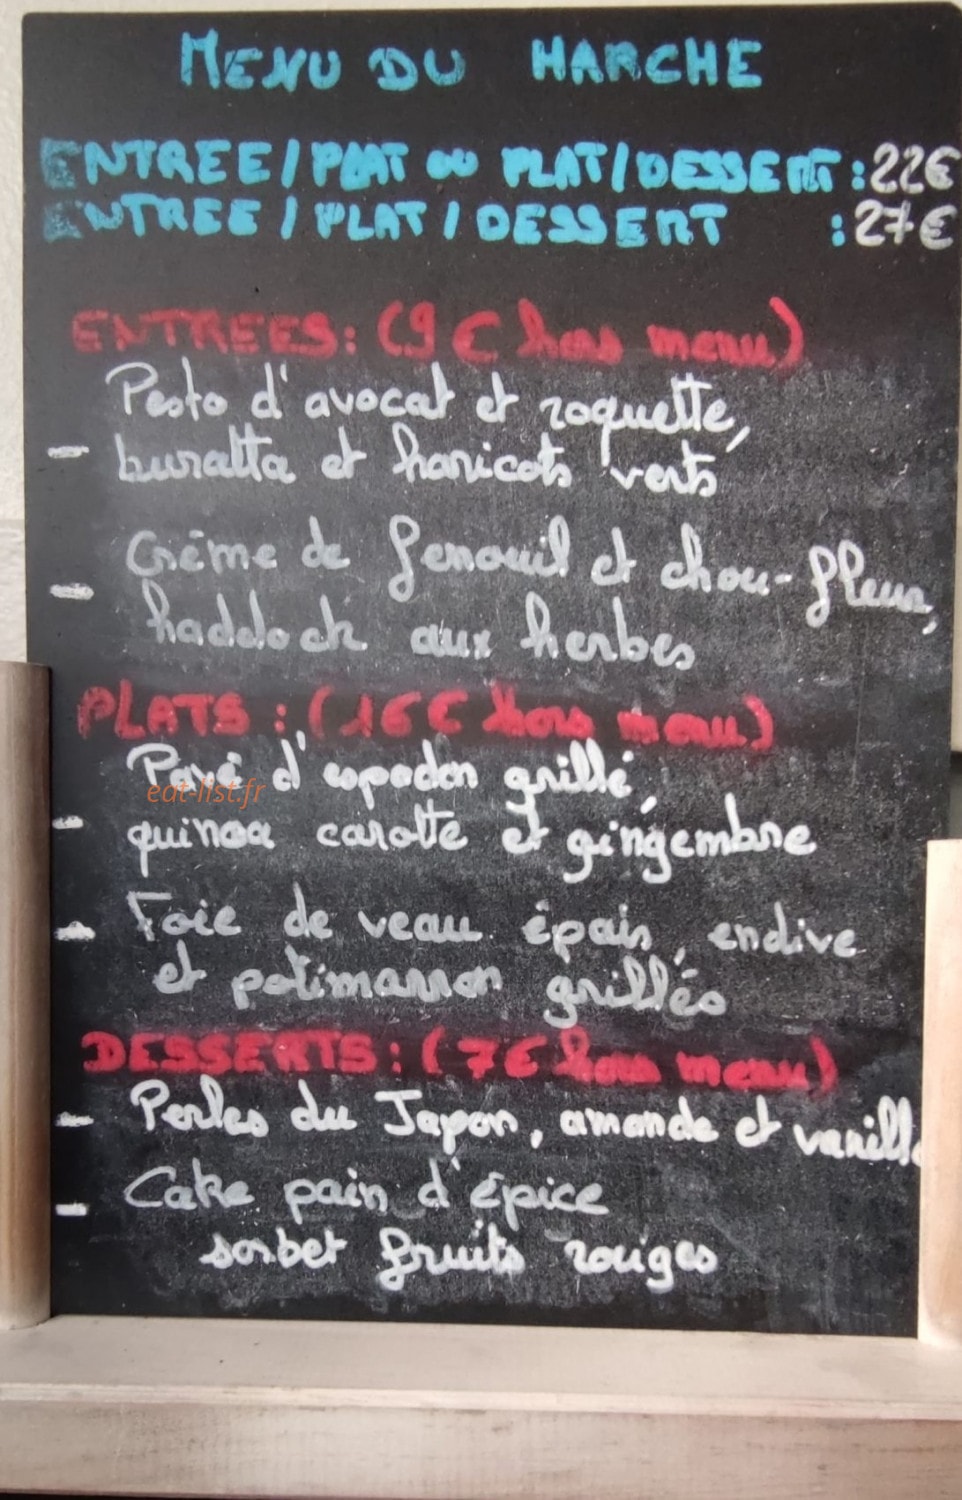 MENU DU MARCHE
ENTREE/PLAT OU PLAT/DESSERT : 22€
ENTREE/PLAT/DESSERT : 27€
ENTREES : (9€ hors menu)
Pesto d'avocat et roquette,
- buratta et haricots verts
Crème de fenouil et chou-fleur,
- haddock aux herbes
PLATS : (16€ hors menu)
Pavé d'espadon grillé,
eat-list.fr
- quinoa carotte et gingembre
- Foie de veau épais, endive
et potimarron grillés
DESSERTS : (7€ hors menu)
- Perles du Japon, amande et vanille
- Cake pain d'épice
sorbet fruits rouges